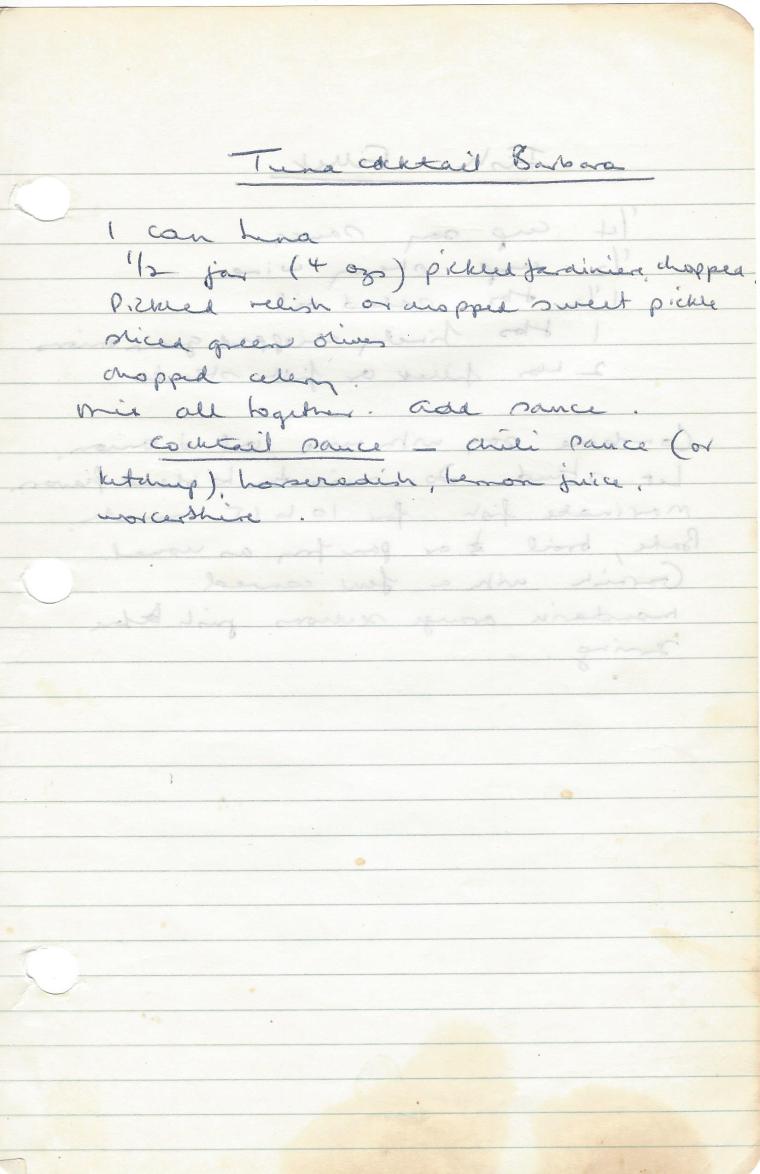 Tuna cocktail Barbara
1 can tuna
1/2 jar (4 ozs) pickled jardiniere, chopped.
Pickled relish or chopped sweet pickle
sliced green olives
chopped celery.
mix all together. add sauce.
cocktail sauce – chili sauce (or
ketchup), horseradish, lemon juice,
worcershire.